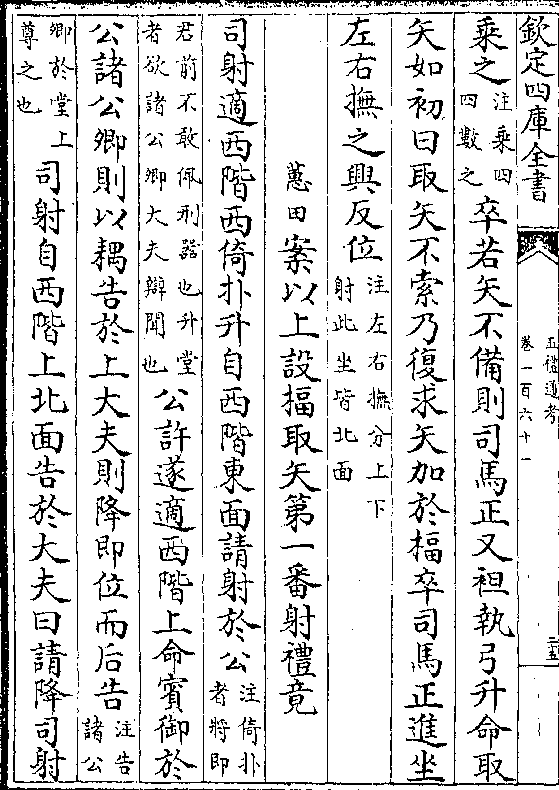 欽定四庫全書
五禮通考
卷一百六十一
三五
乘之注乘四四數之卒若矢不備則司馬正又袒執弓升命取
矢如初曰取矢不索乃復求矢加於楅卒司馬正進坐
左右撫之興反位注左右撫分上下射此坐皆北面
蕙田案以上設楅取矢第一番射禮竟
司射適西階西倚扑升自西階東面請射於公注倚扑者將即
君前不敢佩刑器也升堂者欲諸公卿大夫辯聞也公許遂適西階上命賓御於
公諸公卿則以耦告於上大夫則降即位而后告注告諸公
卿於堂上尊之也司射自西階上北面告於大夫曰請降司射